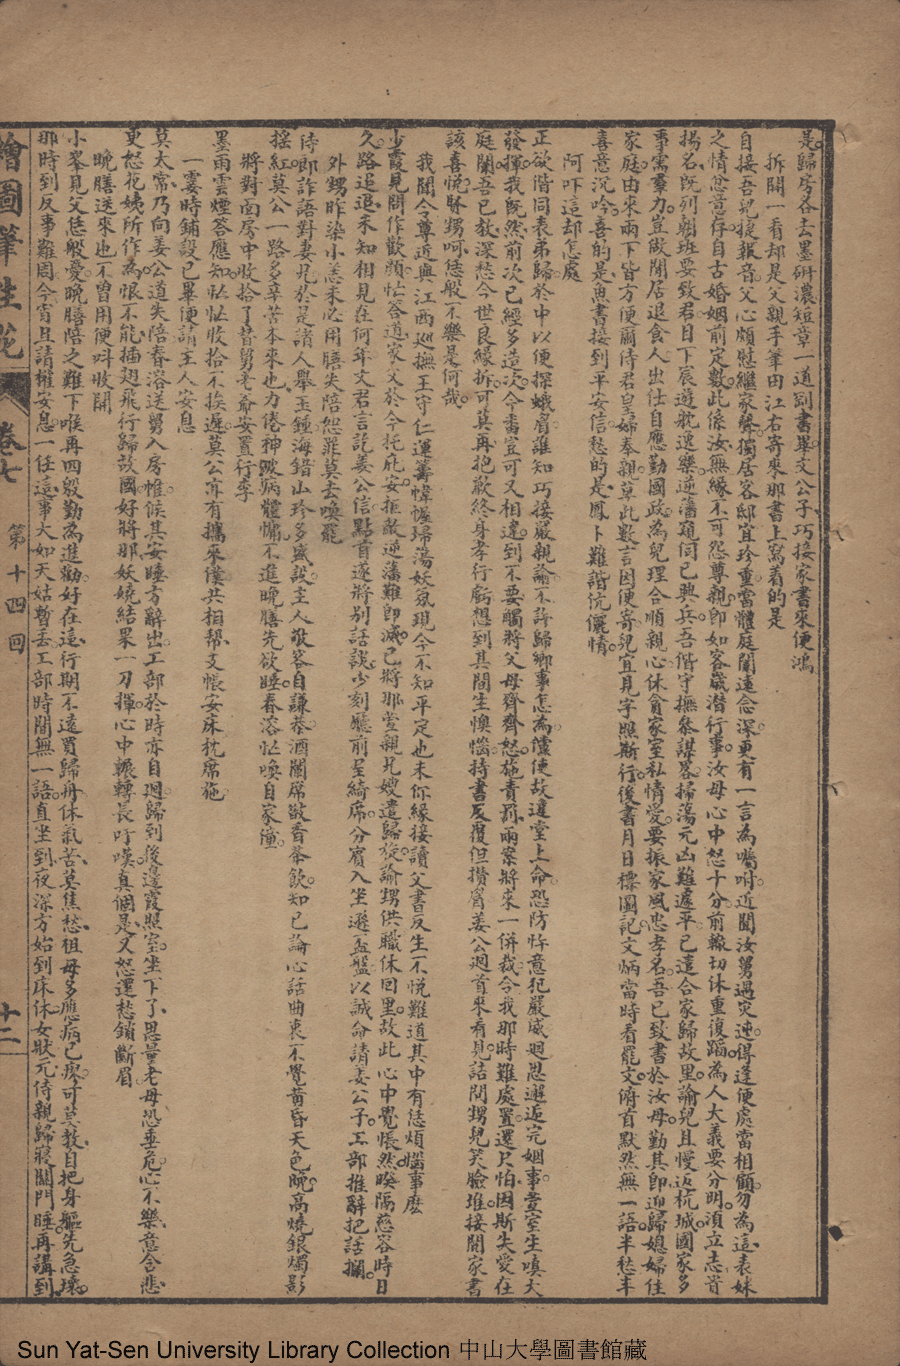 是歸房各去墨研濃短章一道到書畢文公子巧接家書來便鴻
拆開一看却是父親手筆由江右寄來那書上寫着的是
自接吾兒捷報音父心頗慰繼家聲獨居客邸宜珍重當體庭闈遠念深更有一言為囑咐近聞汝舅遇灾迍得逢便處當相顧勿為這表妹
之情忽意存自古婚姻前定數此係汝無緣不可怨尊親即如客歲潜行事汝母心中怒十分前轍切休重復蹈為人大義要分明須立志首
揚名既列朝班要致君目下宸遊就逸樂逆藩窺伺已興兵吾偕守撫叅謀畧掃蕩元凶難遽平已遣合家歸故里諭兒且慢返杭城國家多
事需羣力豈倣閒居退食人出仕自應勤國政為兒理合順親心休貪家室私情愛要振家風忠孝名吾已致書於汝母勤其即迎歸媳婦住
家庭由來兩下皆方便爾侍君皇婦奉親草此數言因便寄兒宜見字照斯行後書月日標圖記文炳當時看罷文俯首默然無一語半愁半
喜意沉吟喜的是魚書接到平安信愁的是鳳卜難諧伉儷情
阿吓這却怎處
正欲偕同表弟歸於中以便探蛾眉誰知巧接嚴親諭不許歸鄉事怎為儻使故違堂上命恐防忤意犯嚴威廻思邂逅完姻事畫室生嗔大
發揮我既然前次已經多造次今番豈可又相違到不要觸將父母齊齊怒施責罰兩案將來一併裁今我那時難處置還只怕因斯失愛在
庭闈吾已教深愁今世良緣拆可莫再抱歉終身孝行虧想到其間生懊惱持書反覆但攢眉姜公迴首來看見詰問甥兒笑臉堆接閱家書
該喜悅賢甥呵恁般不樂是何哉
我聞令尊近與江西巡撫王守仁運籌幃幄掃蕩妖氛現今不知平定也未你緣接讀父書反生不悅難道其中有恁煩惱事麽
少霞見問作歡顏忙答道家父於今托庇安拒敵逆藩難即滅已將那萱親兄嫂遣歸旋諭甥供職休回里故此心中覺悵然暌隔慈容時日
久路迢迢未知相見在何年文君言訖姜公信點首遂將别話談少刻廳前呈綺席分賓入坐遜盃盤以誠命請姜公子工部推辭把話攔
外甥昨染小恙未必用膳失陪恕罪莫去喚罷
侍郎詐語對妻兄於是請人舉玉鍾海錯山珍多盛設主人敬客自謙恭酒闌席散香茶飲知己論心話曲衷不覺黃昏天色晚高燒銀燭影
搖紅莫公一路多辛苦本來也力倦神疲病體慵不進晚膳先欲睡春溶忙喚自家僮
將對面房中收拾了替舅老爺安置行李
墨雨雲煙答應知忙忙收拾不挨遲莫公亦有攜來僕共相幫支帳安床枕席施
一霎時鋪設已畢便請主人安息
莫太常乃向姜公道失陪春溶送舅入房帷候其安睡方辭出工部於時亦自廻歸到後邊霞照室坐下了思量老母恐垂危心不樂意含悲
更怒花姨所作為恨不能插翅飛行歸故國好將那妖嬈結果一刀揮心中輾轉長吁嘆真個是又怒還愁鎖斷眉
晚膳送來也不曾用便叫收開
小峯見父恁般憂晚膳陪之難下喉再四殷勤為進勸好在這行期不遠買歸舟休氣苦莫焦愁祖母多應病已瘳可莫教自把身軀先急壞
那時到反事難周今宵且請權安息一任這事大如天姑暫丟工部時間無一語直坐到夜深方始到床休女狀元侍親歸寢關門睡再講到
繪圖筆生花
卷七
第十四回
十二
Sun Yat-Sen University Library Collection 中山大學圖書館藏